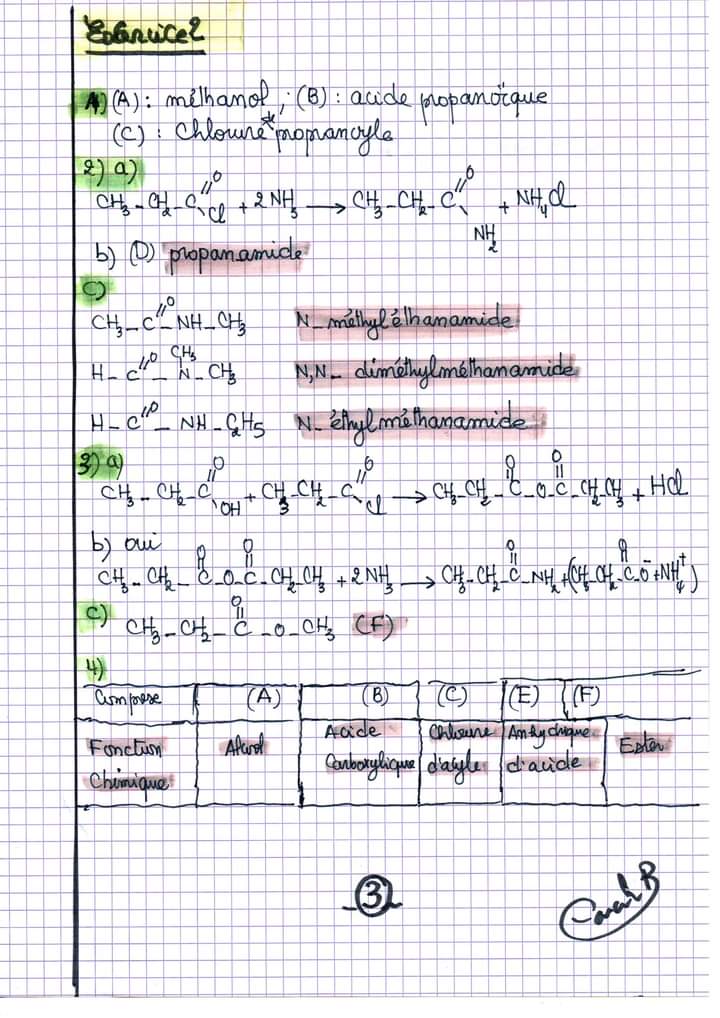 Exercice 2
1) (A) : méthanol ; (B) : acide propanoïque
(C) : chlorure de propanoyle
2) a)
CH₃ - CH₂ - C(=O)-Cl + 2 NH₃ → CH₃ - CH₂ - C(=O)-NH₂ + NH₄Cl
b) (D) propanamide
c)
CH₃ - C(=O) - NH - CH₃ N-méthyléthanamide
H - C(=O) - N(CH₃) - CH₃ N,N- diméthylméthanamide
H - C(=O) - NH - C₂H₅ N-éthylméthanamide
3) a)
CH₃ - CH₂ - C(=O)-OH + CH₃-CH₂ - C(=O)-Cl → CH₃-CH₂ - C(=O) - O - C(=O) - CH₂-CH₃ + HCl
b) oui
CH₃ - CH₂ - C(=O) - O - C(=O) - CH₂ CH₃ + 2 NH₃ → CH₃ - CH₂ - C(=O) - NH₂ + (CH₃-CH₂-C(=O)-O⁻ + NH₄⁺)
c) CH₃ - CH₂ - C(=O) - O - CH₃ (F)
4)
Compose (A) (B) (C) (E) (F)
Fonction Chimique Alcool Acide Carboxylique Chlorure d'acyle Anhydrique d'acide Ester
3